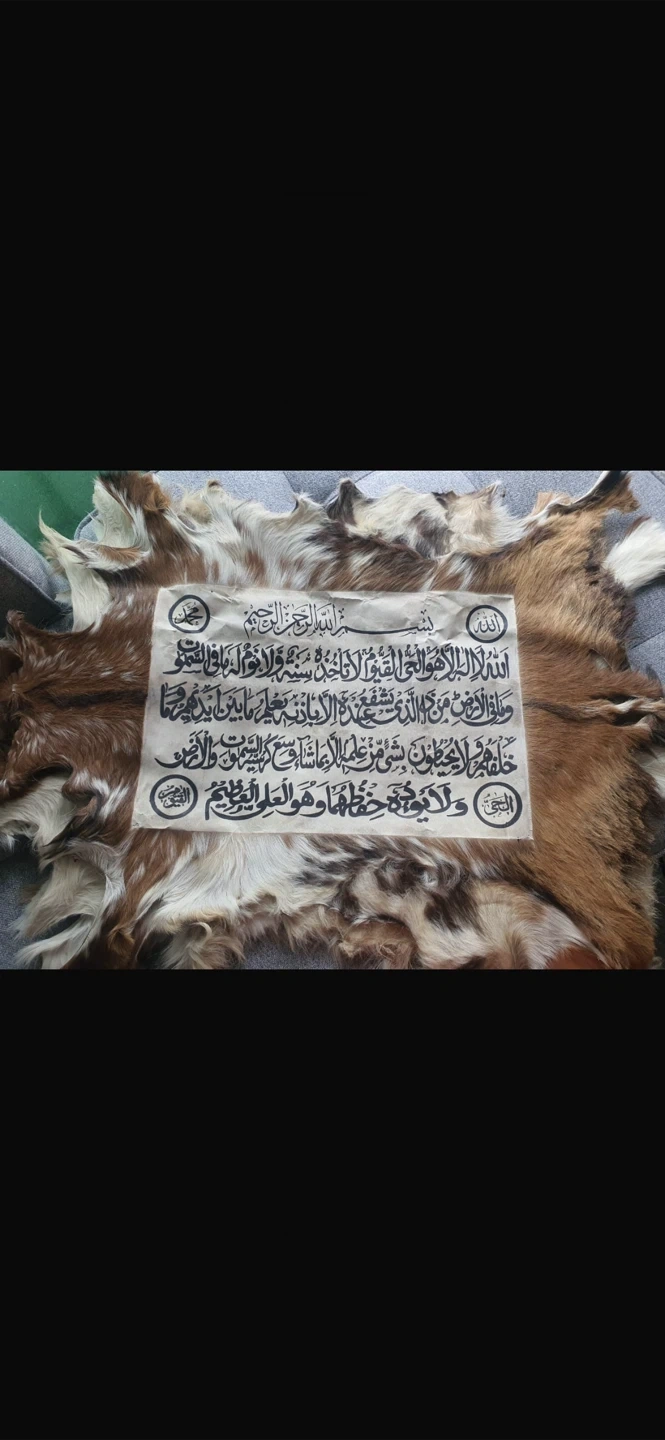 الله
بسم الله الرحمن الرحيم
محمد
الله لا اله الا هو الحى القيوم لا تاخذه سنة ولا نوم له ما فى السموت
وما فى الارض من ذا الذى يشفع عنده الا باذنه يعلم ما بين ايديهم وما
خلفهم ولا يحيطون بشئ من علمه الا بما شاء وسع كرسيه السموت والارض
ولا يوده حفظهما وهو العلى العظيم
الحى
القيوم